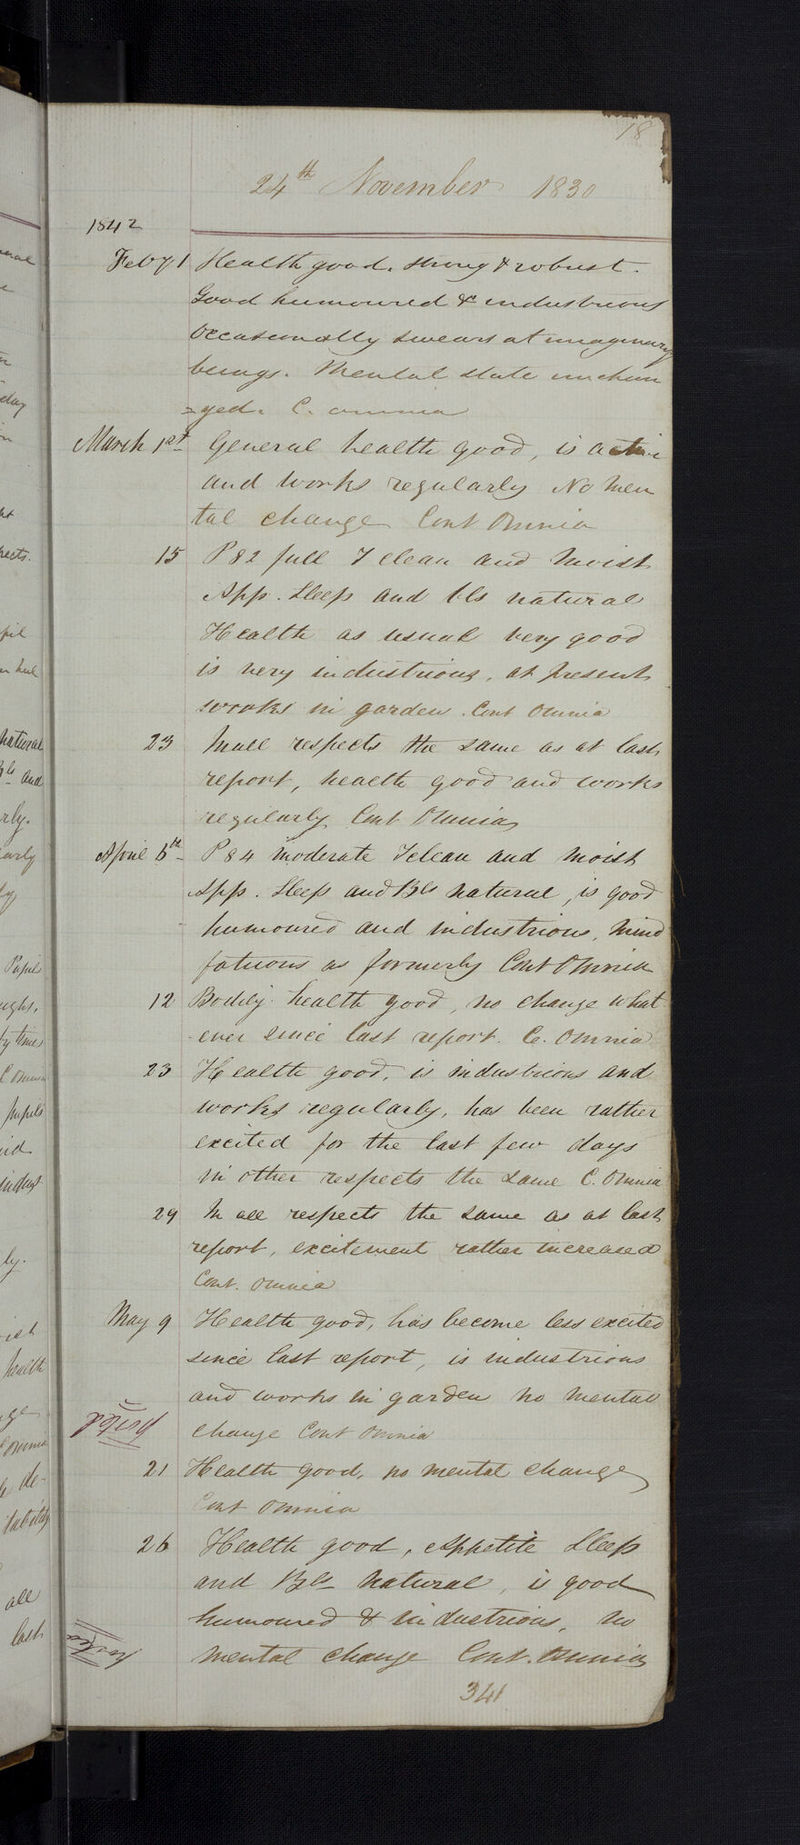 18
24th November 1830
1842
Feby 1 Health good. strong & robust.
Good humoured & industrious
occasionally swears at imaginary
beings. Mental state unchan
=ged. C. omnia
March 1st General health good, is active
and works regularly No men
tal change Cont Omnia
15 P 82 full T clean and moist
App. Sleep and Bls natural
Health as usual very good
is very industrious, at present
works in garden. Cont Omnia
23 In all respects the same as at last
report, health good and works
regularly Cont Omnia
April 5th P 84 moderate T clean and moist
App. Sleep and Bls natural, is good
humoured and industrious, mind
fatuous as formerly Cont Omnia
12 Bodily health good, no change what
ever since last report. C. Omnia
23 Health good, is industrious and
works regularly, has been rather
excited for the last few days
in other respects the same C. Omnia
29 In all respects the same as at last
report, excitement rather increased
Cont. Omnia
May 9 Health good, has become less excited
since last report, is industrious
and works in garden no mental
change Cont Omnia
21 Health good, no mental change
Cont Omnia
26 Health good, Appetite Sleep
and Bls natural, is good
humoured & industrious, no
mental change Cont. Omnia
341